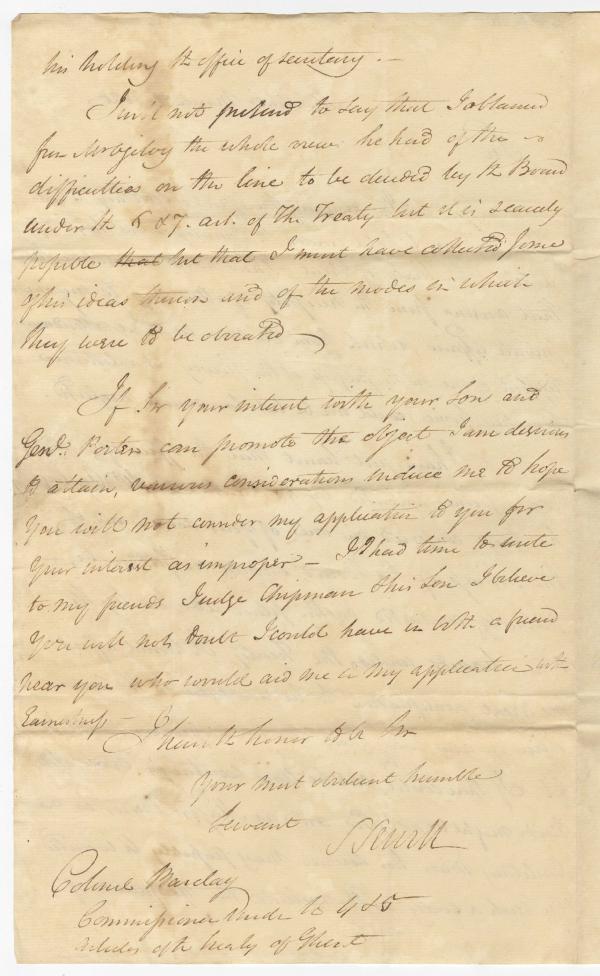 his holding the office of secretary. —
I will not pretend to say that I obtained
from Mr Ogilvy the whole view he had of the
difficulties on the line to be decided by the Board
under the 6 & 7. art. of the Treaty but it is scarcely
possible that but that I must have collected some
of his ideas thereon and of the modes in which
they were to be obviated —
If Sir your interest with your Son and
Genl. Porter can promote the object I am desirous
to attain, various considerations induce me to hope
you will not consider my application to you for
your interest as improper — If I had time to write
to my friends Judge Chipman & his Son I believe
you will not doubt I could have in both a friend
near you who would aid me in my application with
Earnestness —
I have the honor to be Sir
Your most obedient humble
Servant
S Sewell
Colonel Barclay
Commissioner under the 4 & 5
Articles of the treaty of Ghent